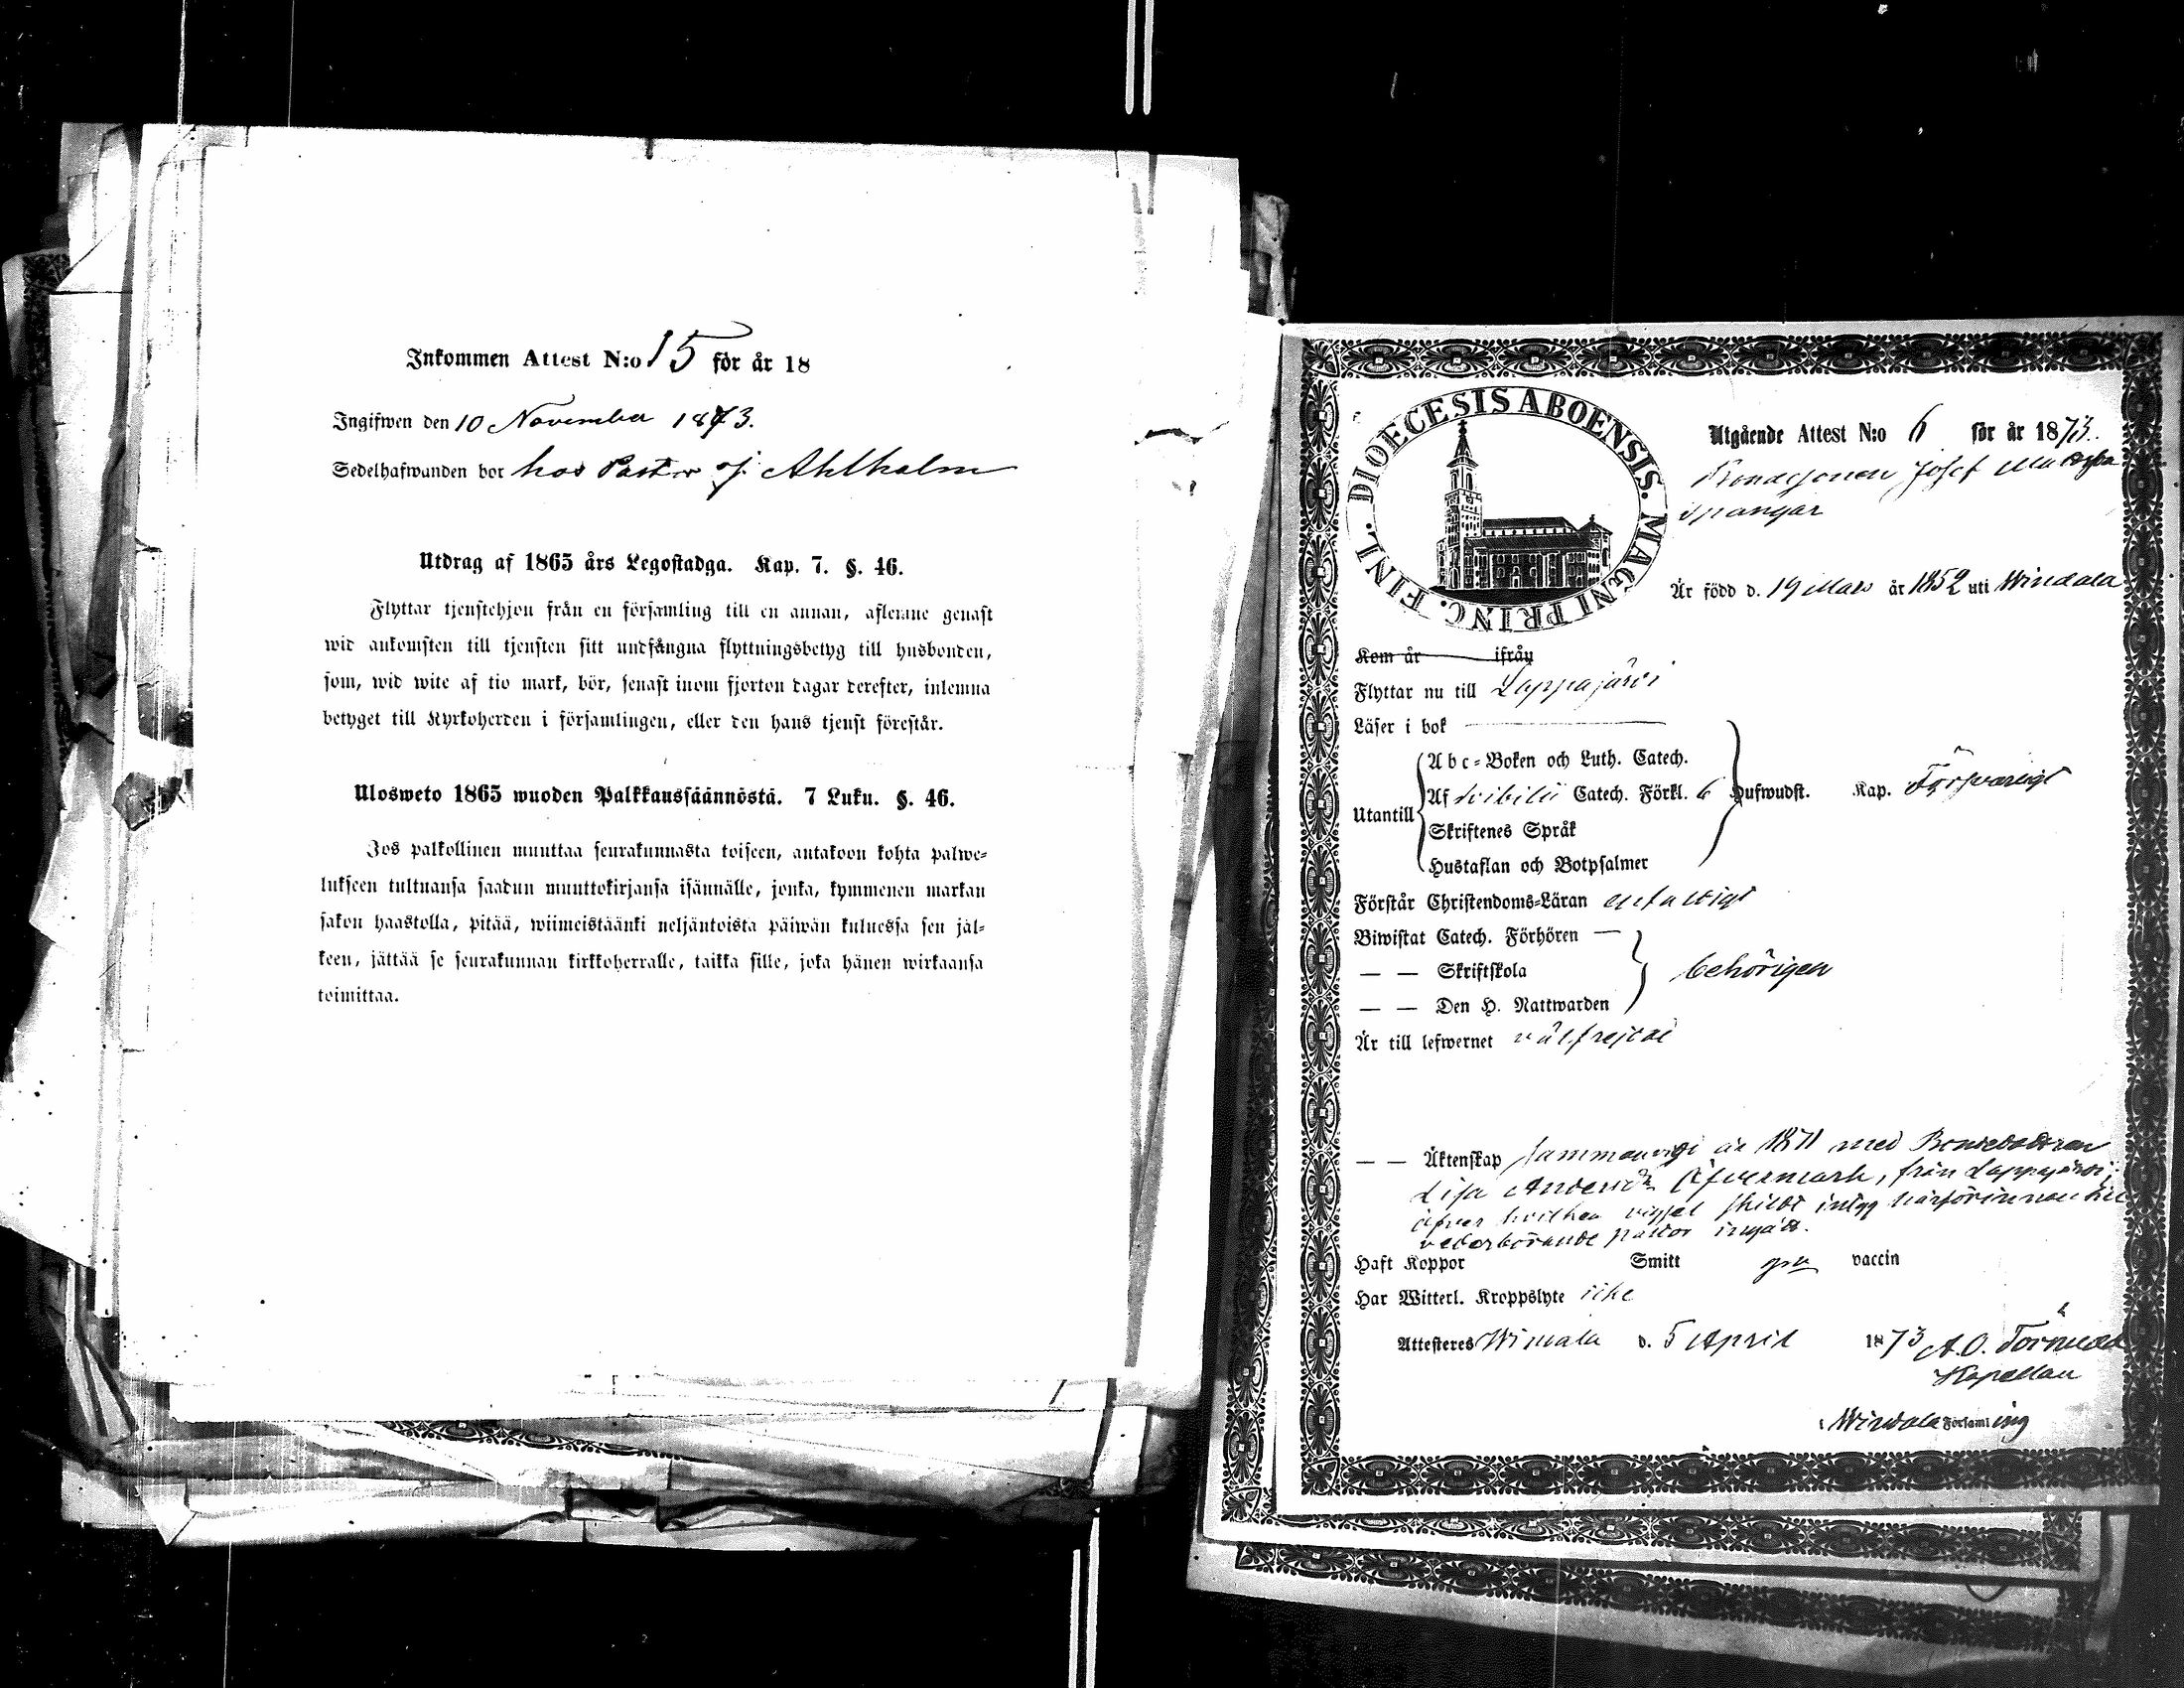 Inkommen Attest N:o 15 för år 18
Ingifwen den 10 November 1873.
Sedelhafwanden bor hos Pastor J. Ahlholm
Utdrag af 1865 års Legostadga. Kap. 7. §. 46.
Flyttar tjenstehjon från en församling till en annan, aflemne genast
wid ankomsten till tjensten sitt undfångna flyttningsbetyg till husbonden,
som, wid wite af tio mark, bör, senast inom fjorton dagar derefter, inlemna
betyget till Kyrkoherden i församlingen, eller den hans tjenst förestår.
Ulosweto 1865 wuoden Palkkaussäännöstä. 7 Luku. §. 46.
Jos palkollinen muuttaa seurakunnasta toiseen, antakoon kohta palwe-
lukseen tultuansa saadun muuttokirjansa isännälle, jonka, kymmenen markan
sakon haastolla, pitää, wiimeistäänki neljäntoista päiwän kuluessa sen jäl-
keen, jättää se seurakunnan kirkkoherralle, taikka sille, joka hänen wirkaansa
toimittaa.
DIOECESIS ABOENSIS. MAGNI PRINC. FINL.
Utgående Attest N:o 6 för år 1873.
Bondesonen Josef Mattsson
Spangar
Är född d. 19 Mars år 1852 uti Windala
Kom år ifrån
Flyttar nu till Lappajärvi
Läser i bok
Abc-Boken och Luth. Catech.
Utantill Af Svibilii Catech. Förkl. 6 Hufwudst. Kap. Försvarligt
Skriftenes Språk
Hustaflan och Botpsalmer
Förstår Christendoms-Läran enfaldigt
Biwistat Catech. Förhören —
— — Skriftskola behörigen
— — Den H. Nattwarden
Är till lefwernet välfrejdad
— — Äktenskap sammanvigd år 1871 med Bondedottren
Lisa Andersdr Öfvermark, från Lappajärvi,
öfver hvilken vigsel skildt intyg härförinnan till
vederbörande pastor ingått.
Haft Koppor Smitt vaccin
Har Witterl. Kroppslyte icke
Attesteres Windala d. 5 April 1873 A. O. Törnudd
Kapellan
i Windala Församling